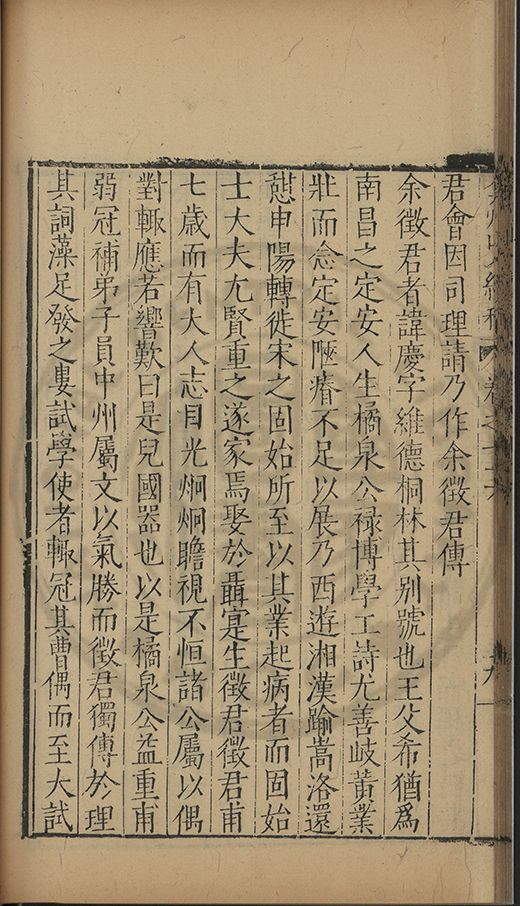 君會因司理請乃作余徵君傳
余徵君者諱慶字維德桐林其別號也王父希猶爲
南昌之定安人生橘泉公祿博學工詩尤善岐黃業
壯而念定安陿瘠不足以展乃西遊湘漢踰嵩洛還
憇申陽轉徙宋之固始所至以其業起病者而固始
士大夫尤賢重之遂家焉娶於聶寔生徵君徵君甫
七歲而有大人志目光炯炯瞻視不恒諸公屬以偶
對輙應若響歎曰是兒國器也以是橘泉公益重甫
弱冠補弟子員中州屬文以氣勝而徵君獨傅於理
其詞藻足發之婁試學使者輙冠其曹偶而至大試